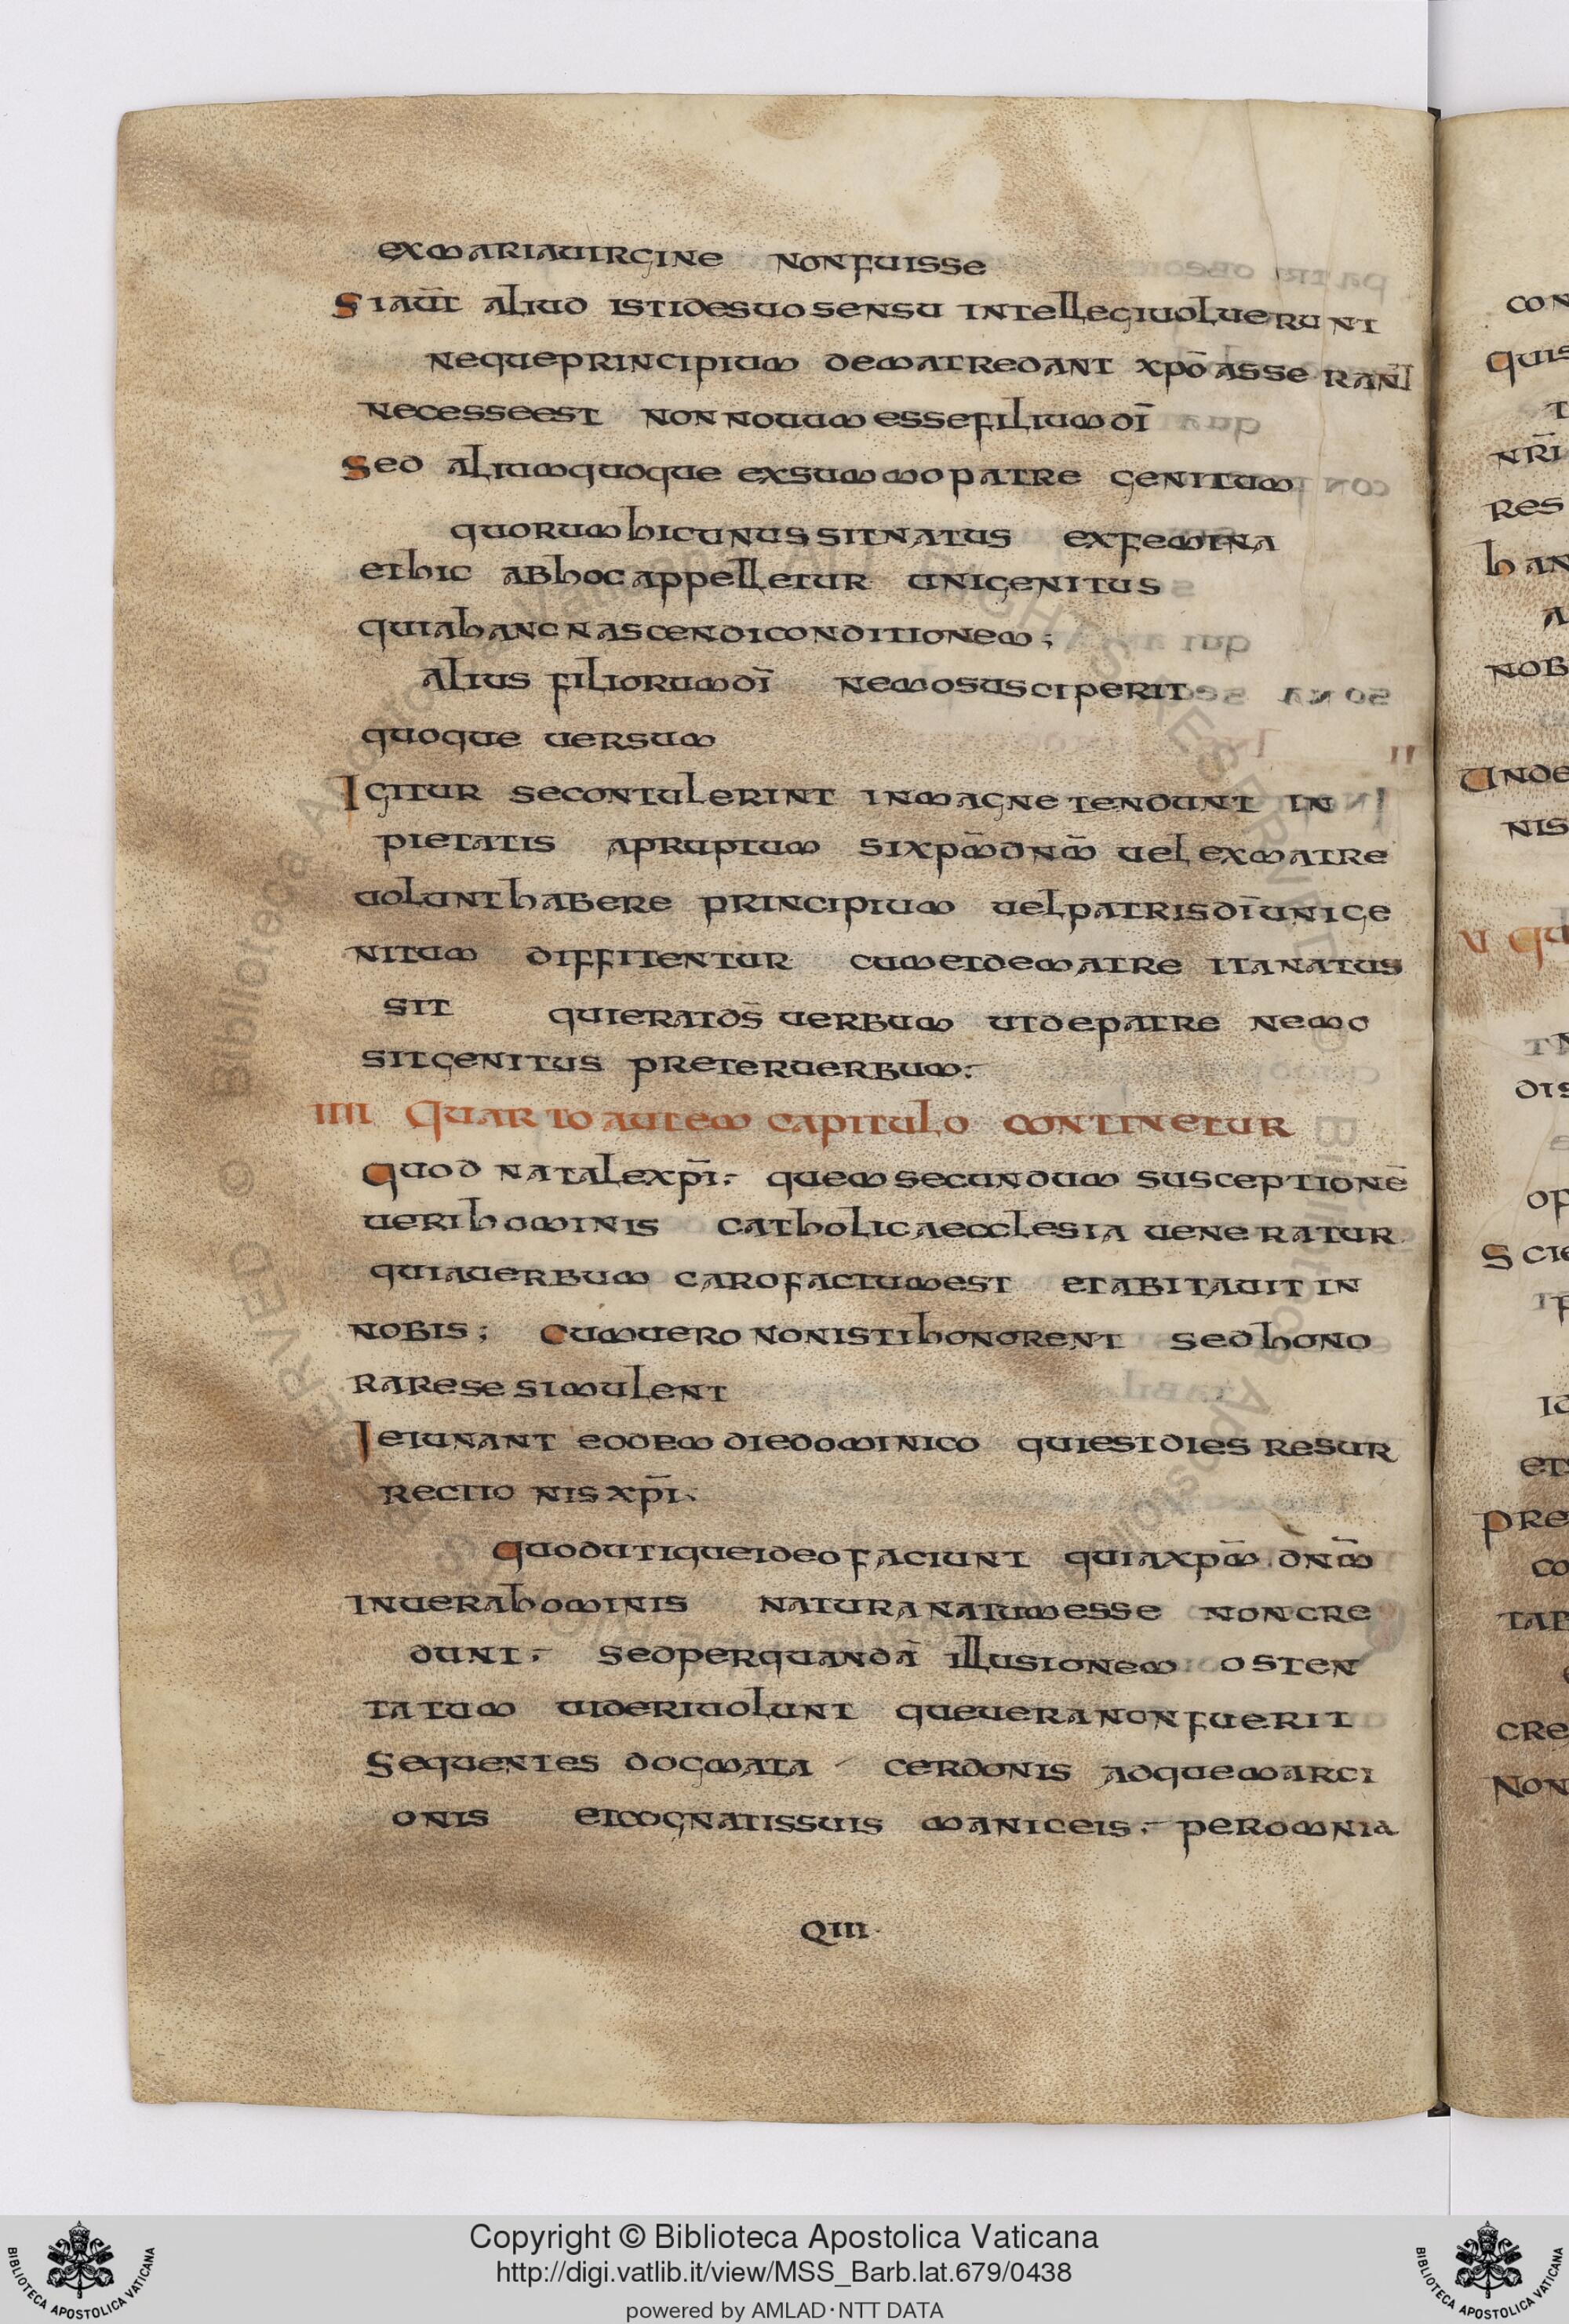 exmariauirgine nonfuisse
Siaut̄ aliud istidesuosensu intellegiuoluerunt
nequeprincipium dematredant xpōasserant̄
necesseest nonnouumessefiliumdī
Sed aliumquoque exsummopatre genitum
quorumhicunus sitnatus exfemina
ethic abhocappelletur unigenitus
quiahancnascendiconditionem;
alius filiorumdī nemosusciperit
quoque uersum
Igitur secontulerint inmagne tendunt in
pietatis apruptum sixpm̄dnm̄ uel exmatre
uolunthabere principium uelpatrisdīunige
nitum diffitentur cumetdematre itanatus
sit quieratds̄ uerbum utdepatre nemo
sitgenitus preteruerbum.
IIII Quarto autem capitulo continetur
quod natalexpī. quem secundum susceptionē
ueri hominis catholicaecclesia ueneratur
quiauerbum carofactumest etabitauit in
nobis; cumuero nonistihonorent sedhono
rarese simulent
Ieiunant eodem diedominico quiestdies resur
rectionis xpī.
quodutiqueideofaciunt quiaxpm̄. dnm̄
inuerahominis naturanatumesse noncre
dunt. sedperquandā illusionem osten
tatum uideriuolunt queueranonfuerit
Sequentes dogmata cerdonis adquemarci
onis etcognatissuis maniceis. peromnia
QIII.
con
quis
nr̄i
res
han
a
nob
II
Unde
nis
V Qu
dis
op
Scie
ip
id
et
pre
co
tap
cre
Non
Copyright © Biblioteca Apostolica Vaticana
http://digi.vatlib.it/view/MSS_Barb.lat.679/0438
powered by AMLAD·NTT DATA
BIBLIOTECA APOSTOLICA VATICANA
BIBLIOTECA APOSTOLICA VATICANA